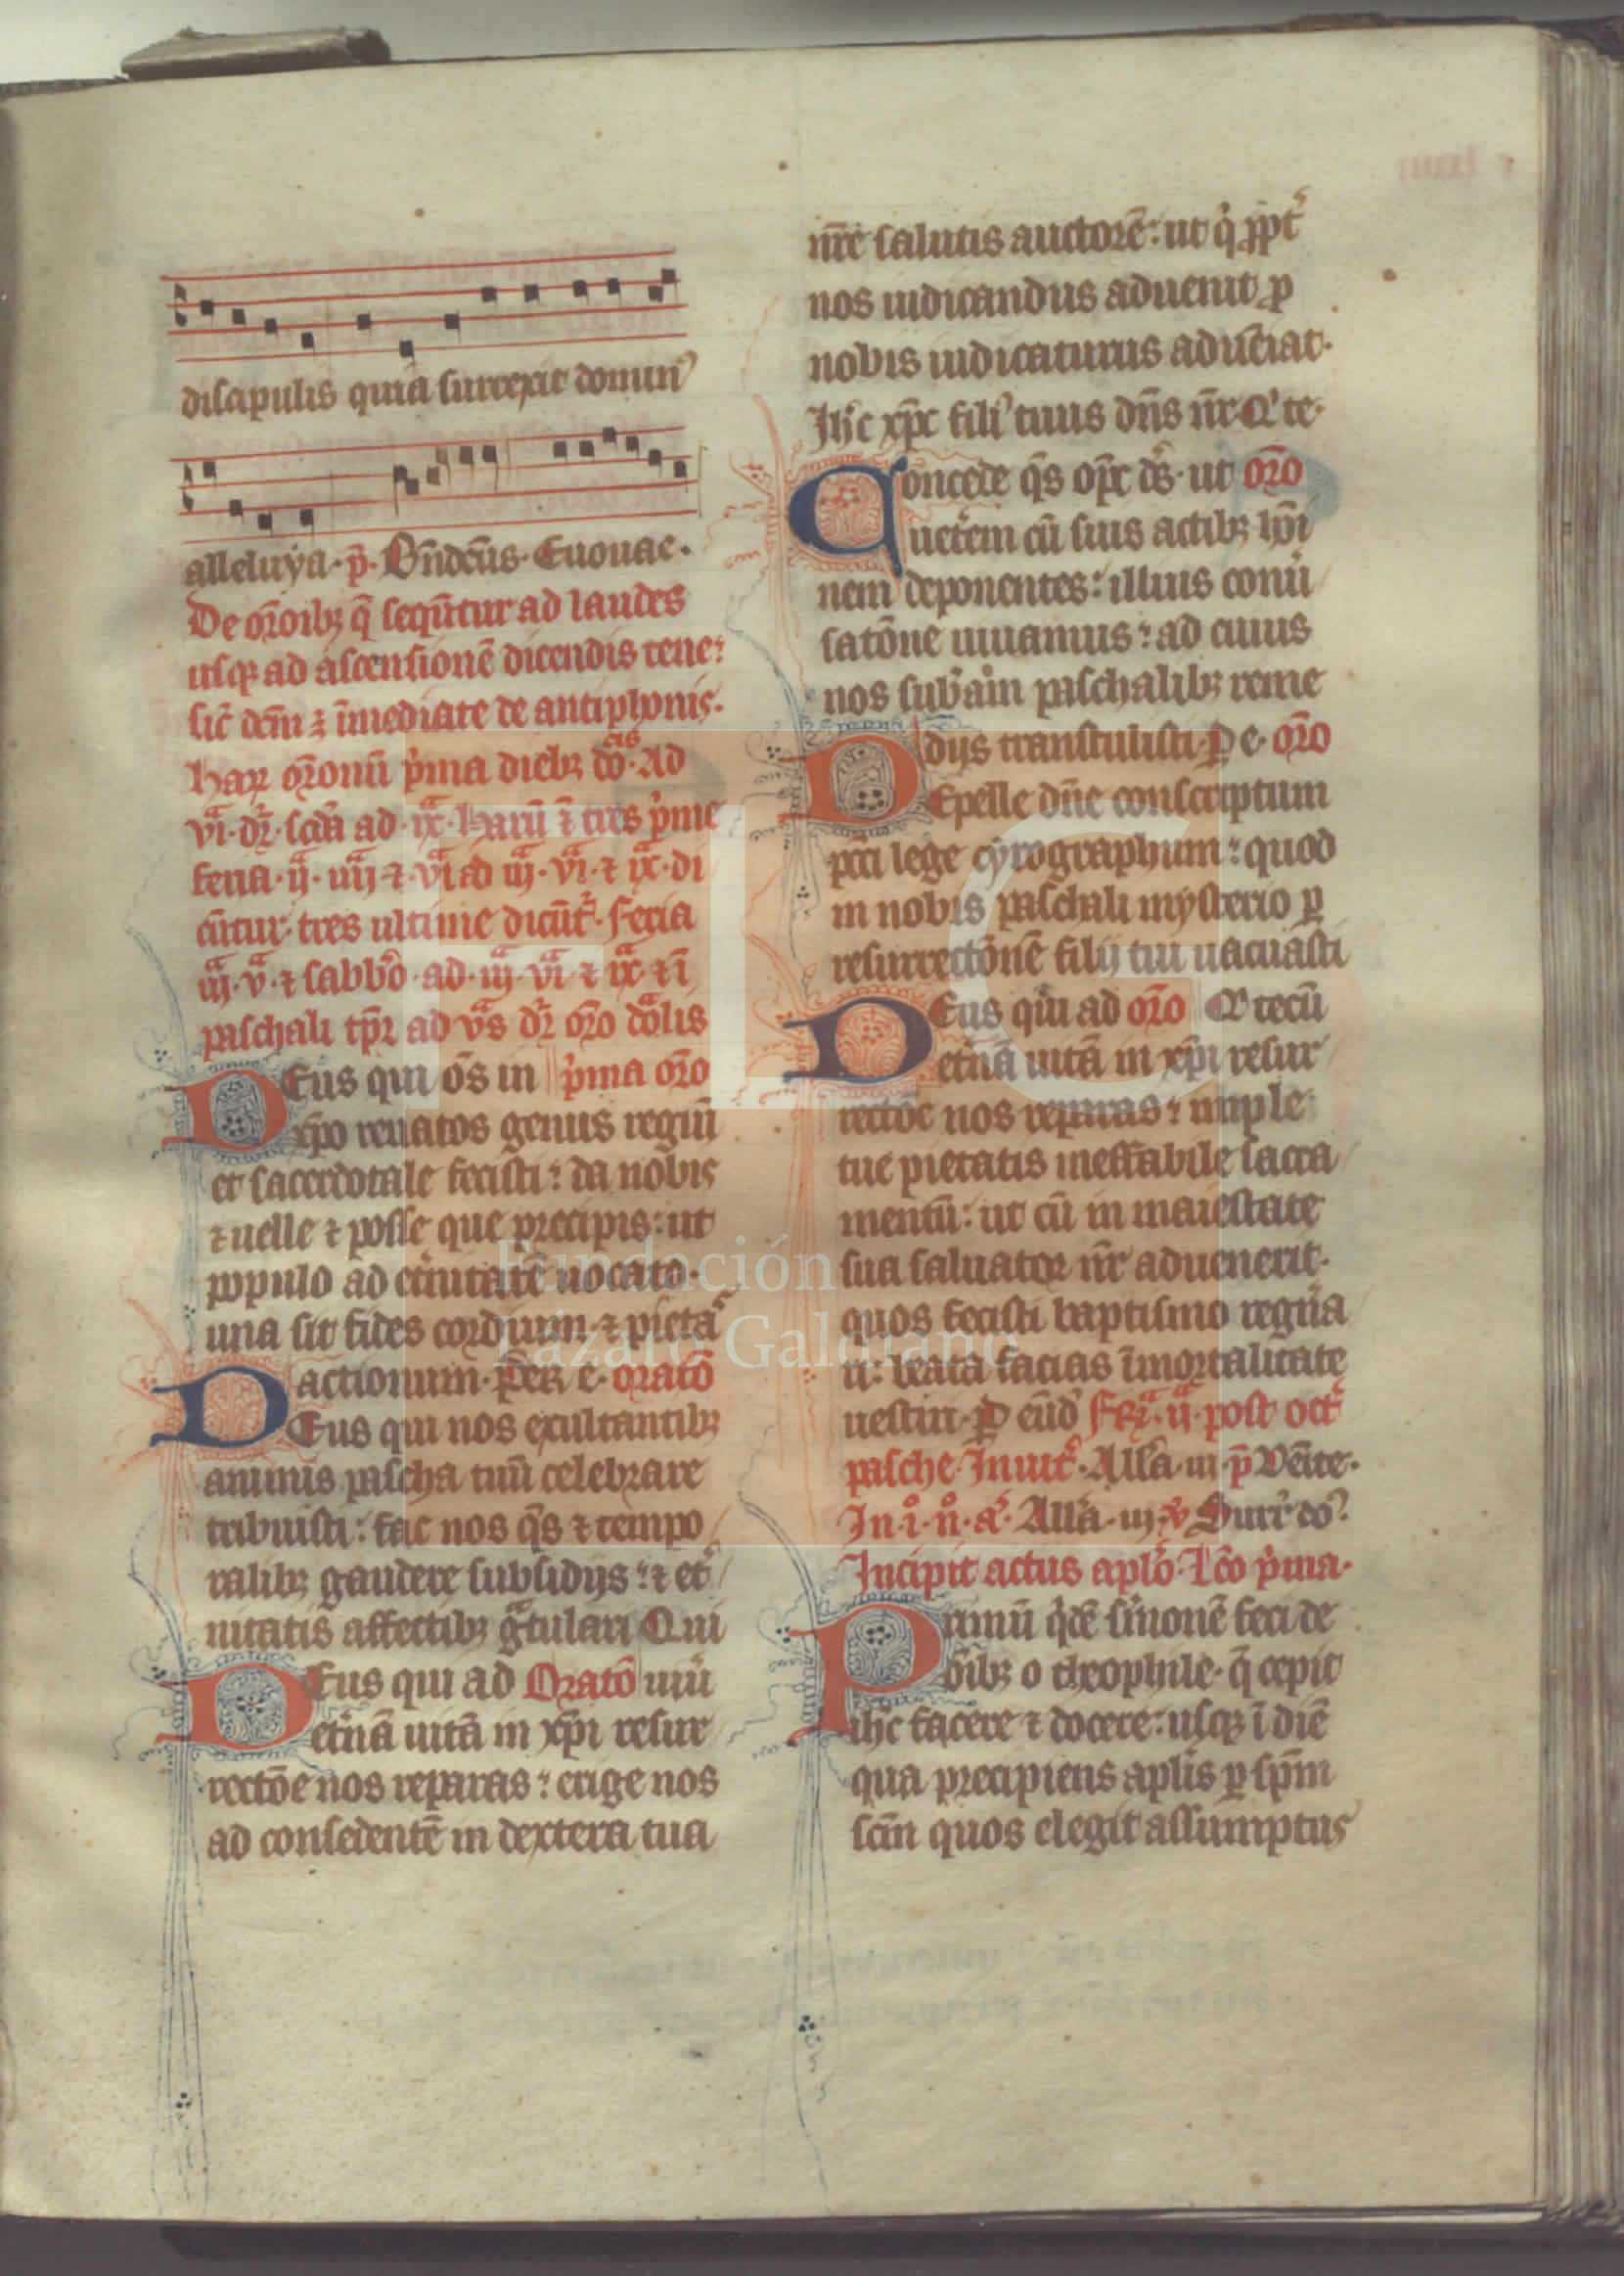 discipulis quia surrexit domin᾽
alleluya. p̄. Bn̄dcūs. Euouae.
De or̄oibꝫ q̄ seqūtur ad laudes
usqꝫ ad ascensionē dicendis tene:
sic̄ dcm̄ ⁊ īmediate de antiphonis.
haꝝ or̄onū p͛ma diebꝫ dō cis. Ad
vı̄ᵃ. dr̄. scd̄a ad .ıxᵃ. harū ı̄ tres p͛me
feria .ij. iiij ⁊ .vıᵃ ad iijᵃ. vıᵃ. ⁊ ıxᵃ. di
cūtur. tres ultime dicūt͛. feria
iijᵃ. vᵃ. ⁊ sabb̄o. ad. iijᵃ. vıᵃ. ⁊ ıxᵃ ⁊ ı̄
paschali tp̄r ad vᵃs dr̄ or̄o dōlis
DEus qui ōs in p͛ma or̄o
xp̄o renatos genus regiū
et sacerdotale fecisti: da nobis
⁊ uelle ⁊ posse que precipis: ut
populo ad et͛nitatē uocato.
una sit fides cordium ⁊ pieta
actionum. per e. oratō
DEus qui nos exultantibꝫ
animis pascha tuū celebrare
tribuisti: fac nos q̄s ⁊ tempo
ralibꝫ gaudere subsidijs: ⁊ et͛
nitatis affectibꝫ gᵃtulari Qui
DEus qui ad Oratō uiū
et͛nā uitā in xp̄i resur
rectōe nos reparas: erige nos
ad consedentē in dextera tua
nr̄e salutis auctorē: ut q͛ ꝓpt͛
nos iudicandus aduenit ꝓ
nobis iudicaturus adūeiat.
Ihc̄ xp̄c fili᾽ tuus dn̄s nr̄. Qⁱ te.
Concede q̄s op̄c ds̄. ut or̄o
uet͛em cū suis actibꝫ hōı̄
nem deponentes: illius conū
satōne uiuamus: ad cuius
nos sub͛am paschalibꝫ reme
dijs transtulisti. P e. or̄o
DEpelle dn̄e conscriptum
pcc̄i lege cyrographum: quod
in nobis paschali mysterio ꝑ
resurrectōnē filij tui uacuasti
DEus qui ad or̄o Qⁱ tecū
et͛nā uitā in xp̄i resur
rectōe nos reparas: imple
tue pietatis ineffabile sacra
mentū: ut cū in maiestate
sua saluator nr̄ aduenerit.
quos fecisti baptismo regn̄a
ri: beata facias īmortalitate
uestiri. P eūd᾽ Fer͛. ijᵃ. post oct͛
pasche Inuit᾽. All͛a. iij p̄ Ven̄te.
In .i. n̊. a͛. All͛a. iij. v͛ Surr͛ do᾽.
Incipit actus aplō. Lc̄o p͛ma.
Primū q͛dē s͛monē feci de
om̄ibꝫ o theophile. q̄ cepit
ihc̄ facere ⁊ docere: usqꝫ ī diē
qua precipiens aplis ꝑ sp̄m
scm̄ quos elegit assumptus
Fundación
Lázaro Galdiano
FLG